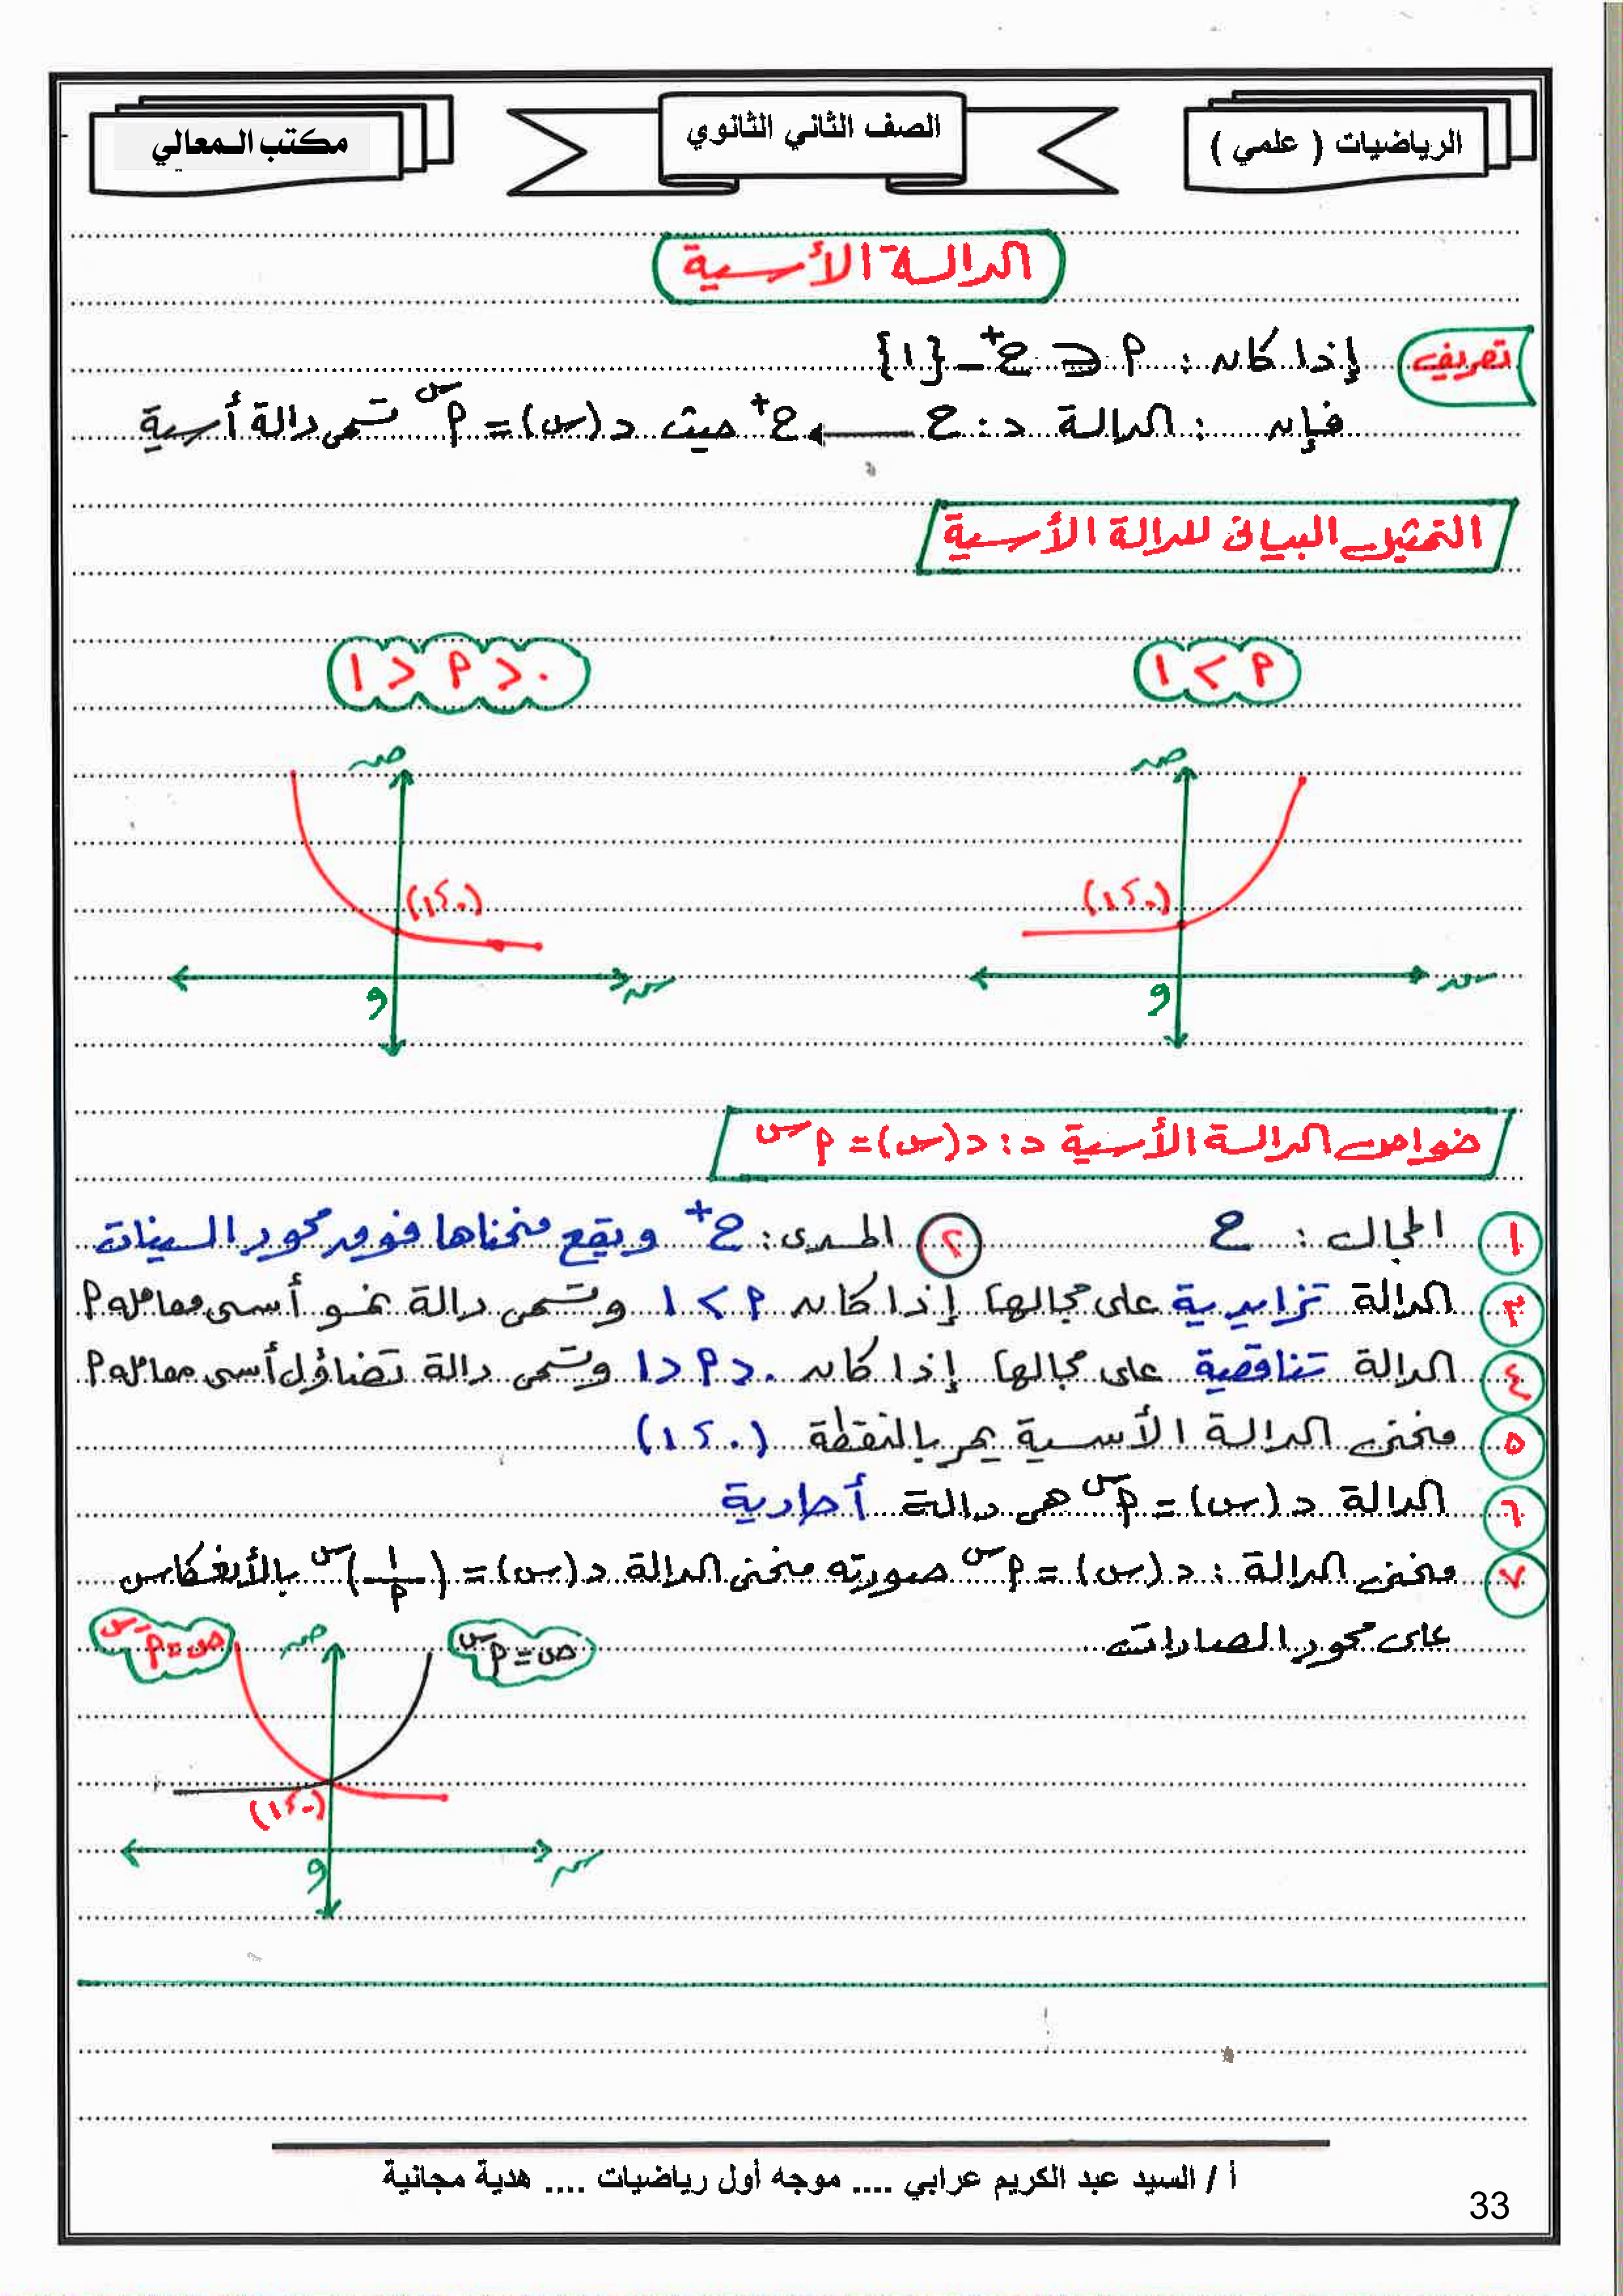 الرياضيات ( علمي )
الصف الثاني الثانوي
مكتب المعالي
الدالة الأسية
تعريف إذا كان : ‮P‬ ∈ ح⁺ - {١}
فإن : الدالة د : ح ← ح⁺ حيث د(س) = ‮P‬ˢ تسمى دالة أسية
التمثيل البياني للدالة الأسية
‮P‬ > ١
٠ < ‮P‬ < ١
ص
ص
(١،٠)
(١،٠)
س
س
و
و
خواص الدالة الأسية د : د(س) = ‮P‬ˢ
١ المجال : ح ٢ المدى : ح⁺ ويقع منحناها فوق محور السينات
٣ الدالة تزايدية على مجالها إذا كان ‮P‬ > ١ وتسمى دالة نمو أسى معامله ‮P‬
٤ الدالة تناقصية على مجالها إذا كان ٠ < ‮P‬ < ١ وتسمى دالة تضاؤل أسى معامله ‮P‬
٥ منحنى الدالة الأسية يمر بالنقطة (١،٠)
٦ الدالة د(س) = ‮P‬ˢ هى دالة أحادية
٧ منحنى الدالة : د(س) = ‮P‬ˢ صورته منحنى الدالة د(س) = (١/‮P‬)ˢ بالأنعكاس
على محور الصادات
ص = ‮P‬ˢ
ص
ص = ‮P‬⁻ˢ
(١،٠)
س
و
أ / السيد عبد الكريم عرابي .... موجه أول رياضيات .... هدية مجانية
33